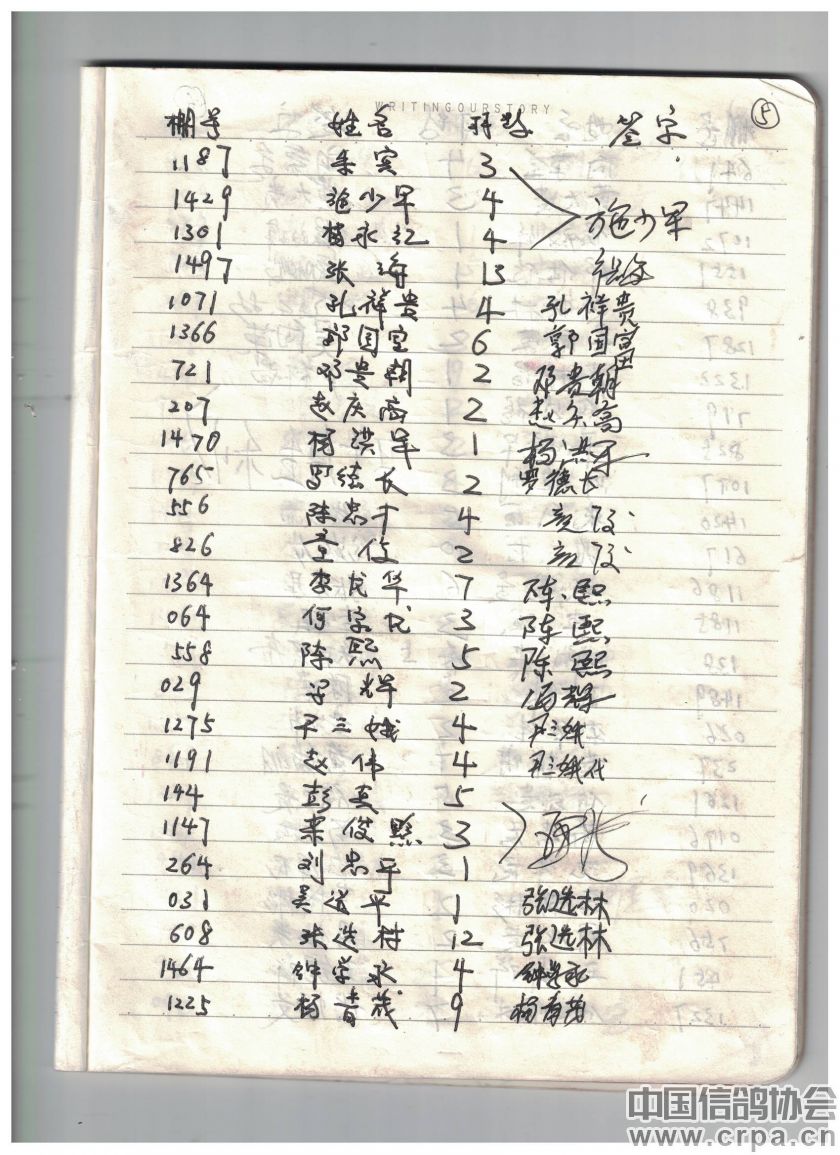 WRITINGOURSTORY
⑤
棚号 姓名 羽数 签字
1187 朱宾 3
1429 施少军 4 施少军
1301 杨永红 4
1497 张海 13 张海
1071 孔祥贵 4 孔祥贵
1366 郭国富 6 郭国富
721 邓贵朝 2 邓贵朝
207 赵庆高 2 赵庆高
1470 杨洪军 1 杨洪军
765 罗德长 2 罗德长
556 陈忠才 4
826 童俊 2
1364 李龙华 7 陈熙
064 何字龙 3 陈熙
558 陈熙 5 陈熙
029 辉 2
1275 三娥 4
1191 赵伟 4 代
144 彭真 5
1147 俊熙 3
264 刘忠平 1
031 吴选平 1 张选林
608 张选林 12 张选林
1464 钟学永 4 钟学永
1225 杨青茂 9 杨青茂
中国信鸽协会
www.crpa.cn